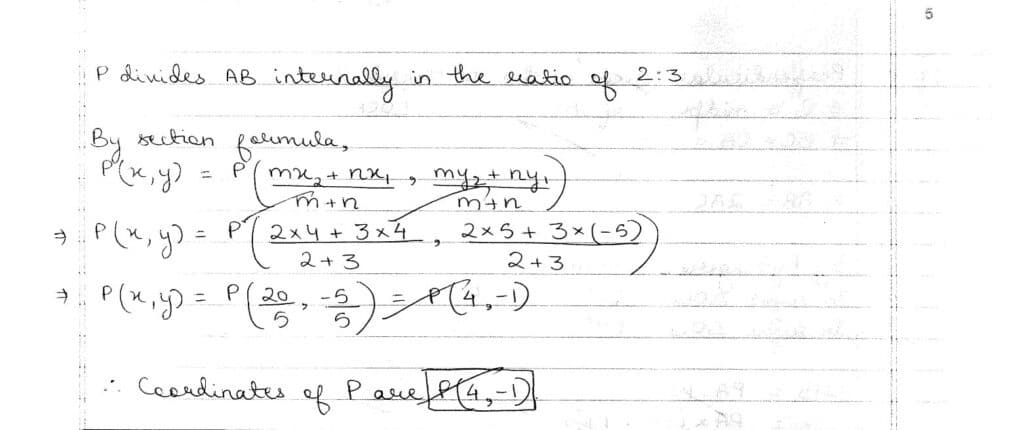 5
P divides AB internally in the ratio of 2:3
By section formula,
P(x,y) = P( (mx₂ + nx₁)/(m+n) , (my₂ + ny₁)/(m+n) )
⇒ P(x,y) = P( (2×4 + 3×4)/(2+3) , (2×5 + 3×(-5))/(2+3) )
⇒ P(x,y) = P( 20/5 , -5/5 ) = P(4,-1)
∴ Coordinates of P are P(4,-1)